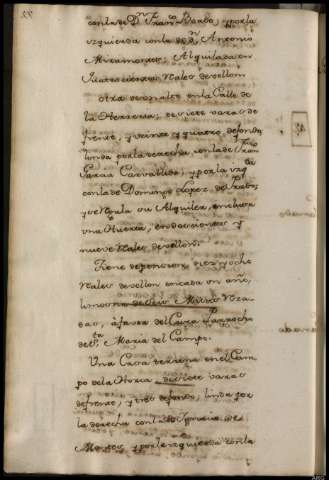 con la de Dn. Franco. Pardo, y por la
izquierda con la de Dn. Antonio
Miramontes; Alquilada en
Quatrocientos Reales de vellon
Otra de sin altos en la Calle de
la Herreria; de siete varas de
frente, y veinte y quatro de fondo
linda por la derecha, con la de Franco.
Garcia Carvallido, y por la izqda
con la de Domingo Lopez del
y se regula su Alquiler, en
una Huerta, en doscientos y
nueve Reales de vellon.
Tiene de pension diez y ocho
Reales de vellon en cada un año,
limosna de Seis Misas Reza-
das, a favor del Cura Parrocho
de Sta. Maria del Campo.
Una Casa terrena en el Cam-
po de la Horca de siete varas
de frente, y tres de fondo, linda por
la derecha con la de Ignacia de
y por la izquierda con la